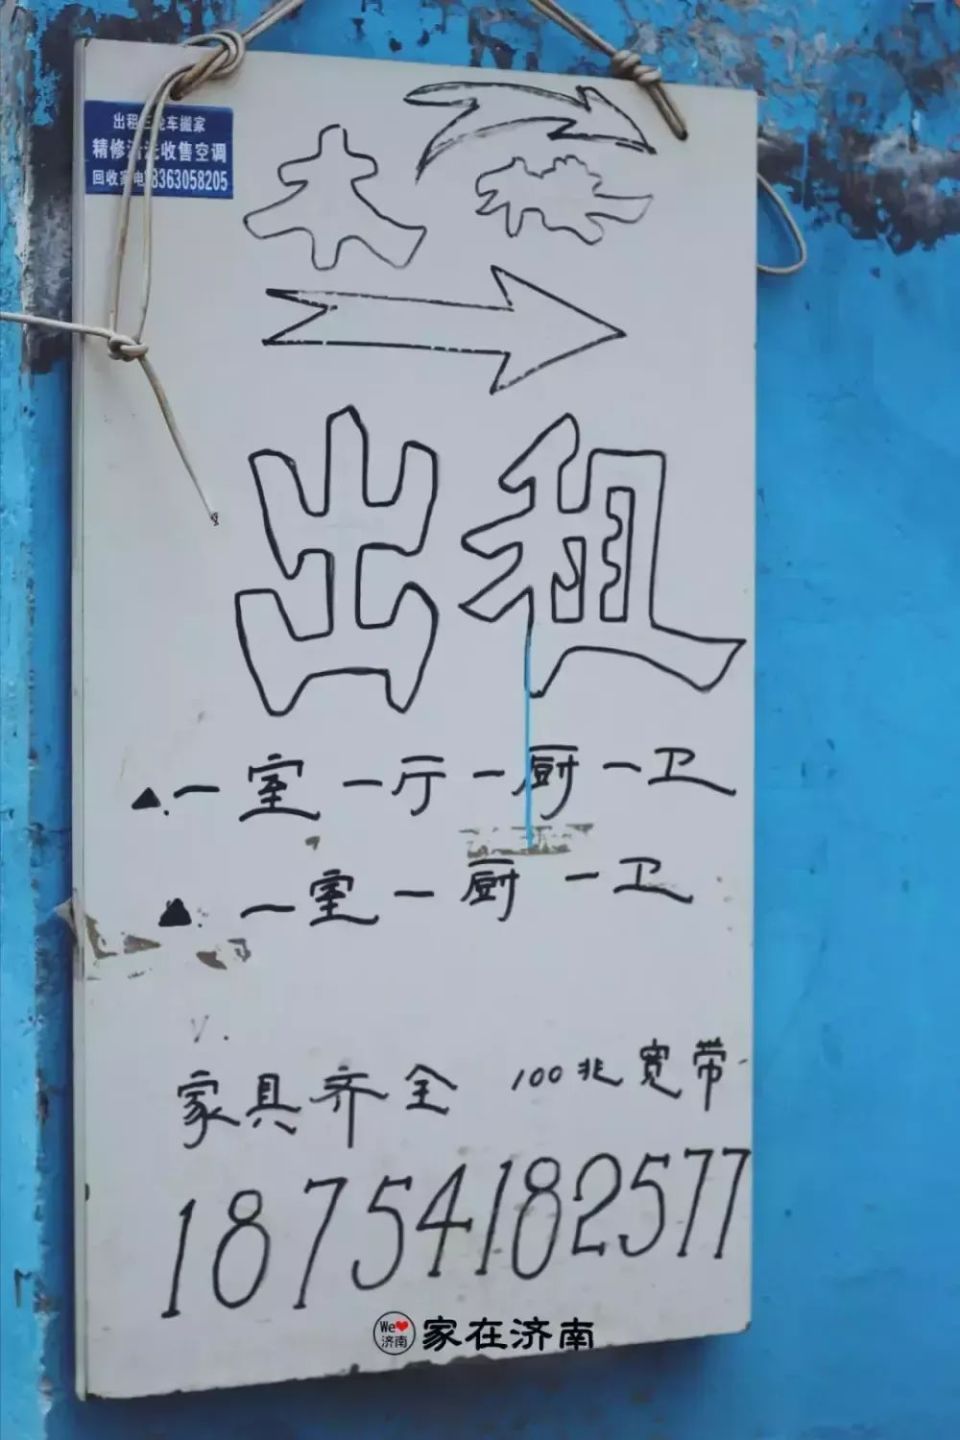 出租三轮车搬家
精修清洗收售空调
回收家电18363058205
出租
▲.一室一厅一厨一卫
▲.一室一厨一卫
家具齐全 100兆宽带
18754182577
We❤济南 家在济南